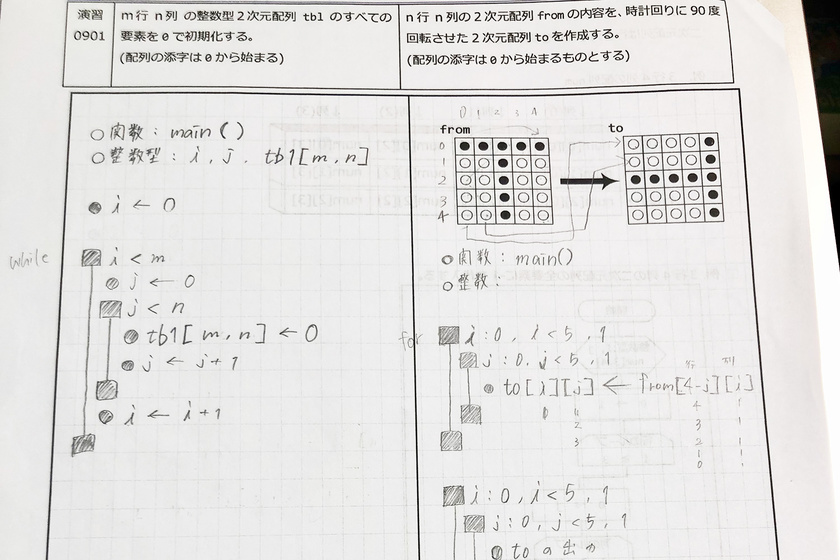 演習
0901
m行 n列 の整数型2次元配列 tbl のすべての
要素を0で初期化する。
(配列の添字は0から始まる)
n行 n列の2次元配列 from の内容を、時計回りに90度
回転させた2次元配列 to を作成する。
(配列の添字は0から始まるものとする)
○関数: main()
○整数型: i, j, tbl[m,n]
● i ← 0
while
■ i < m
● j ← 0
■ j < n
● tbl[m,n] ← 0
● j ← j+1
● i ← i+1
0 1 2 3 4
from
to
0
1
2
3
4
○関数: main()
○整数:
for
■ i:0, i<5, 1
■ j:0, j<5, 1
行 列
● to[i][j] ← from[4-j][i]
■ i:0, i<5, 1
■ j:0, j<5, 1
● toの出力